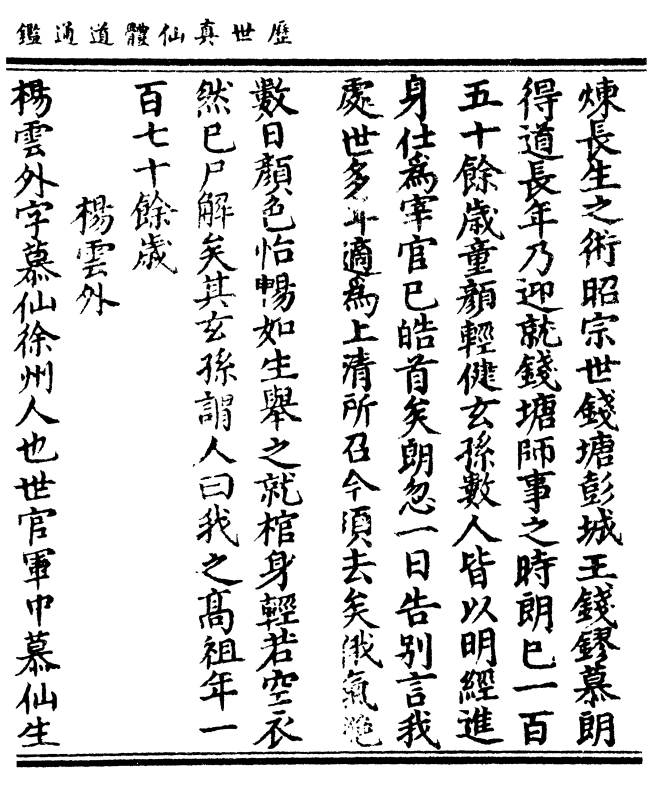 歷世真仙體道通鑑
煉長生之術昭宗世錢塘彭城王錢鏐慕朗
得道長年乃迎就錢塘師事之時朗巳一百
五十餘歲童顏輕健玄孫數人皆以明經進
身仕為宰官巳皓首矣朗忽一日告別言我
處世多年適為上清所召今須去矣俄氣絕
數日顏色怡暢如生舉之就棺身輕若空衣
然巳尸解矣其玄孫謂人曰我之髙祖年一
百七十餘歲
楊雲外
楊雲外字慕仙徐州人也世官軍中慕仙生